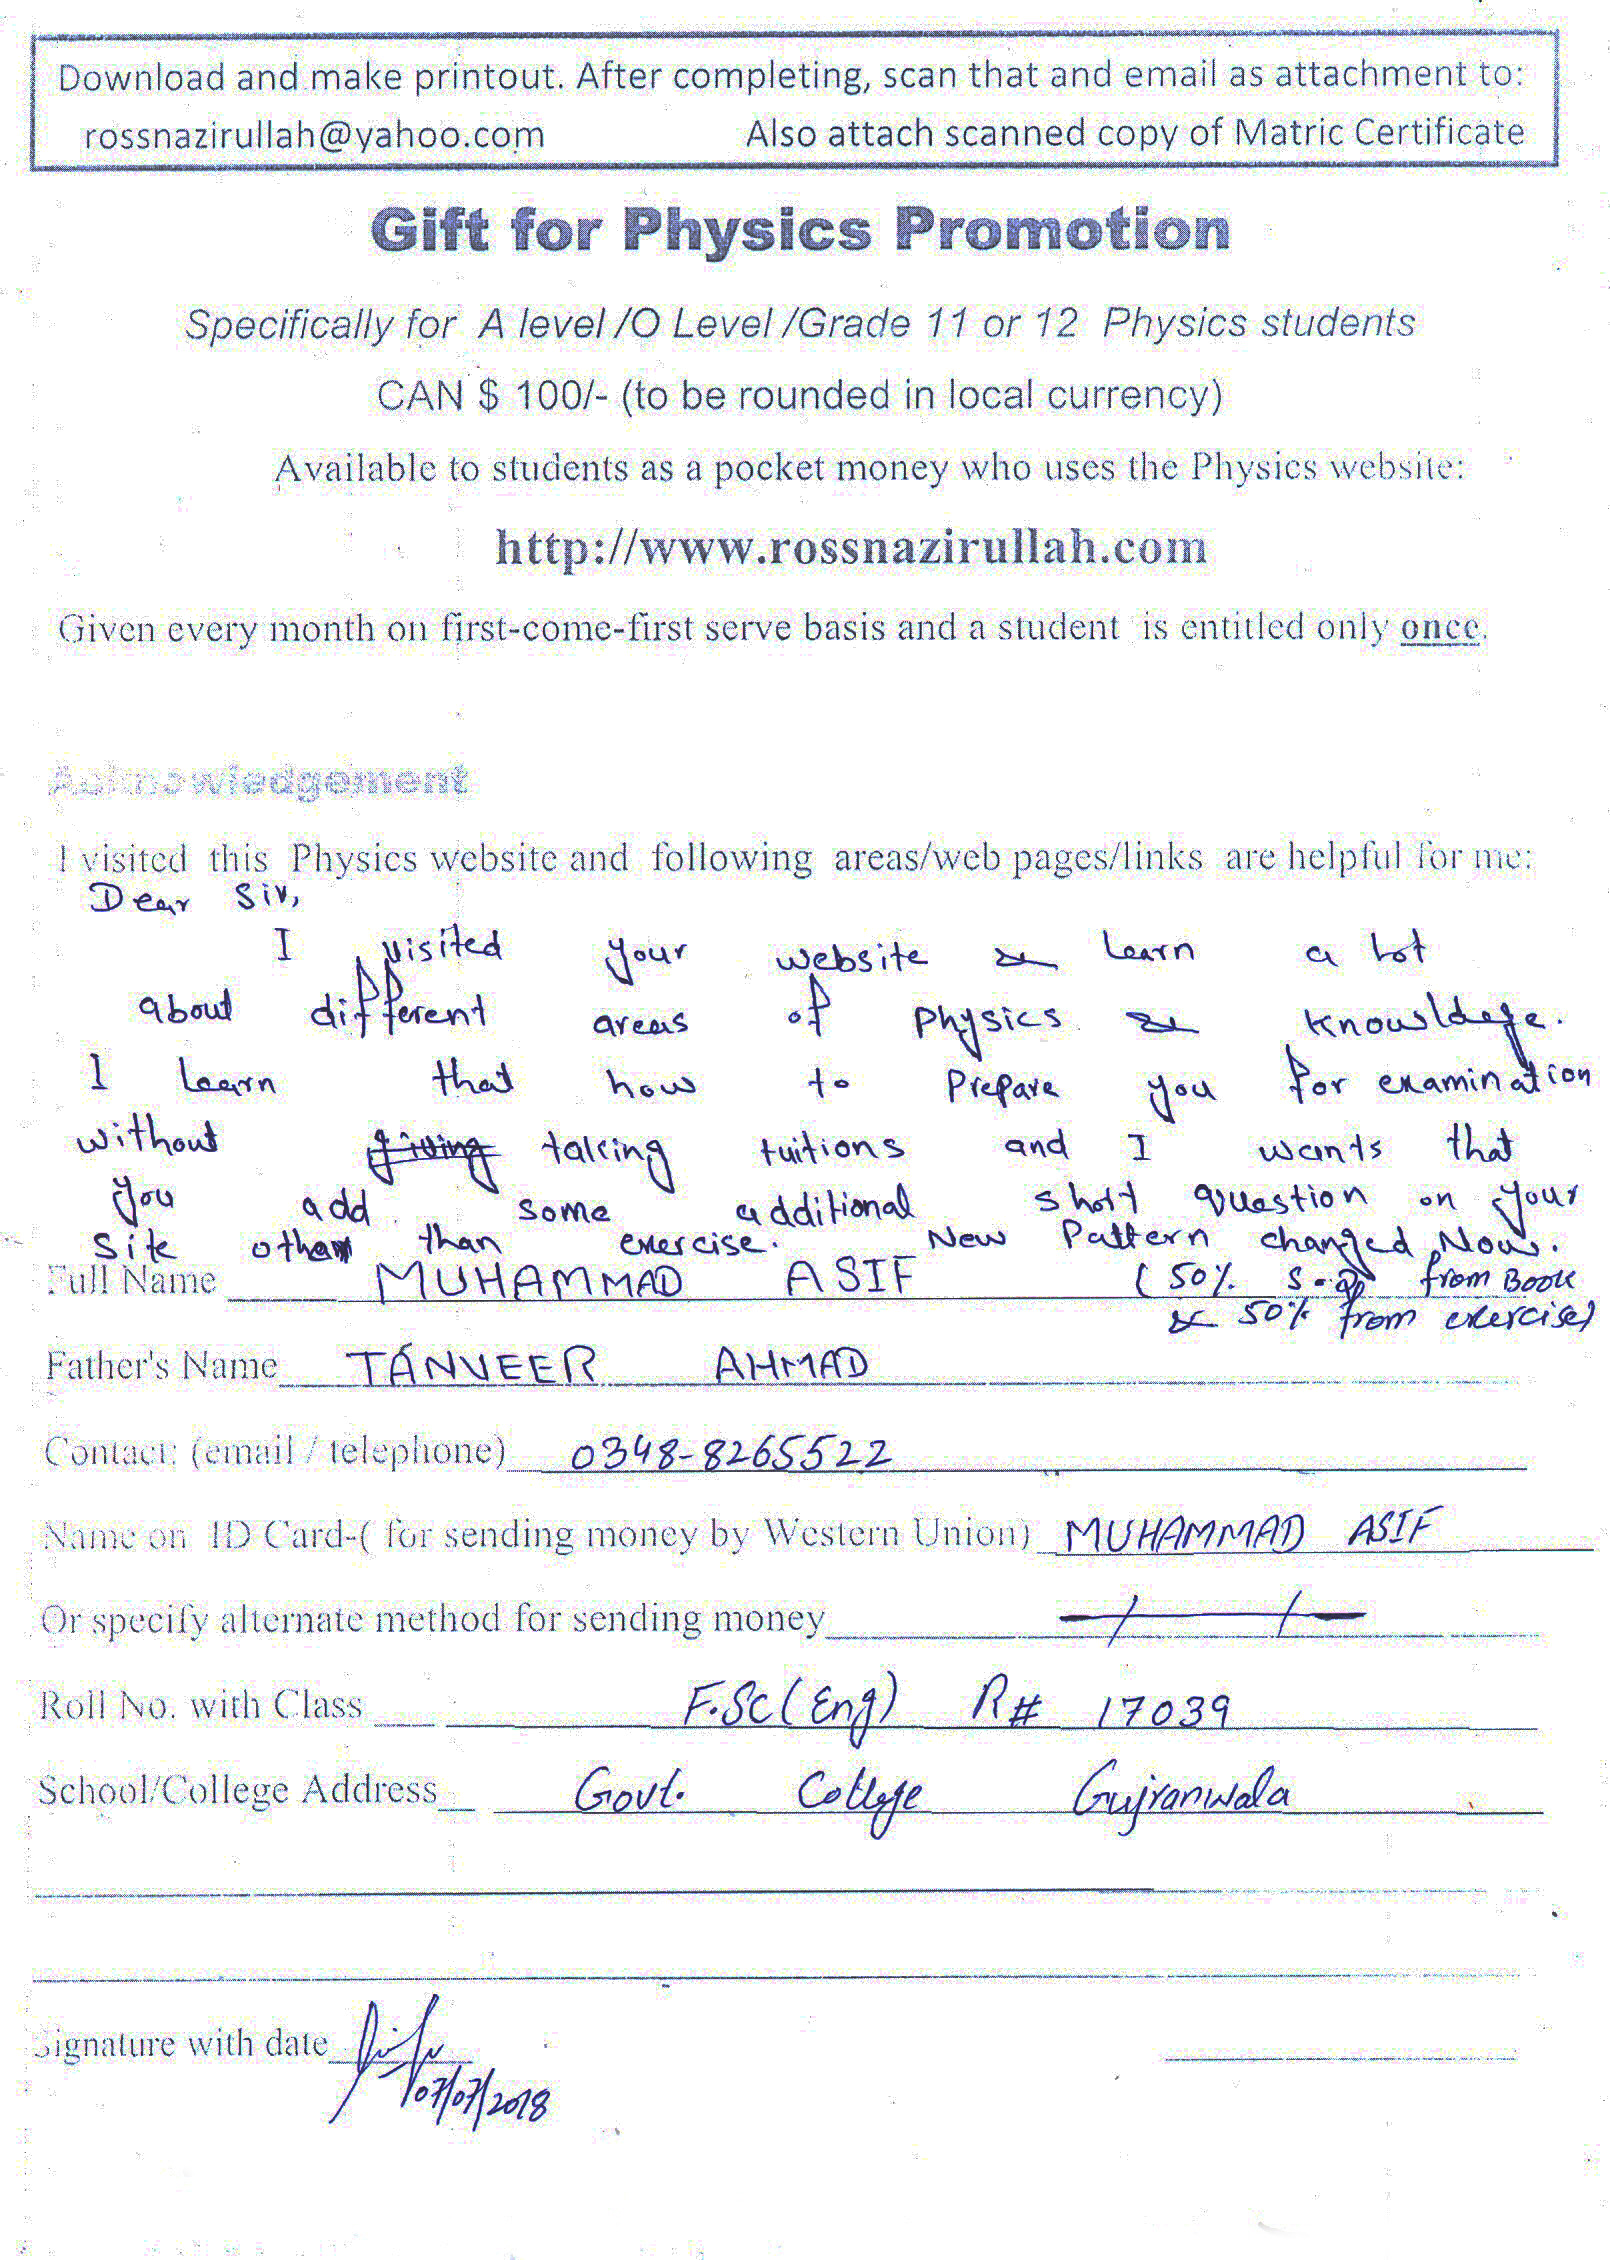 Download and make printout. After completing, scan that and email as attachment to:
rossnazirullah@yahoo.com Also attach scanned copy of Matric Certificate
Gift for Physics Promotion
Specifically for A level /O Level /Grade 11 or 12 Physics students
CAN $ 100/- (to be rounded in local currency)
Available to students as a pocket money who uses the Physics website:
http://www.rossnazirullah.com
Given every month on first-come-first serve basis and a student is entitled only once.
Acknowledgement
I visited this Physics website and following areas/web pages/links are helpful for me:
Dear Sir,
I visited your website & learn a lot
about different areas of physics & knowldege.
I learn that how to Prepare you for examination
without giving taking tuitions and I wants that
you add some additional short question on your
site other than exercise. New Pattern changed Now.
Full Name MUHAMMAD ASIF (50% S.Q from Book
& 50% from exercise)
Father's Name TANVEER AHMAD
Contact: (email / telephone) 0348-8265522
Name on ID Card-( for sending money by Western Union) MUHAMMAD ASIF
Or specify alternate method for sending money
Roll No. with Class F.Sc (Eng) R# 17039
School/College Address Govt. College Gujranwala
Signature with date
07/07/2018